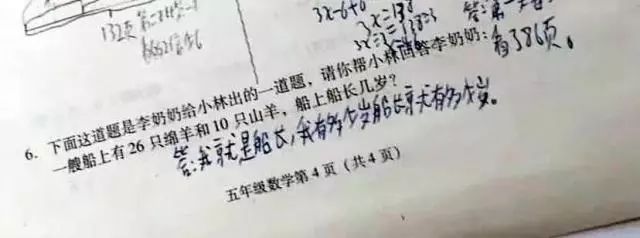 132页
3x-6+6
3x=138
3x÷3=138÷3
答:第一
看386页。
6. 下面这道题是李奶奶给小林出的一道题,请你帮小林回答李奶奶:
一艘船上有26只绵羊和10只山羊,船上船长几岁?
答:我就是船长,我有多少岁船长就有多少岁。
五年级数学第4页(共4页)